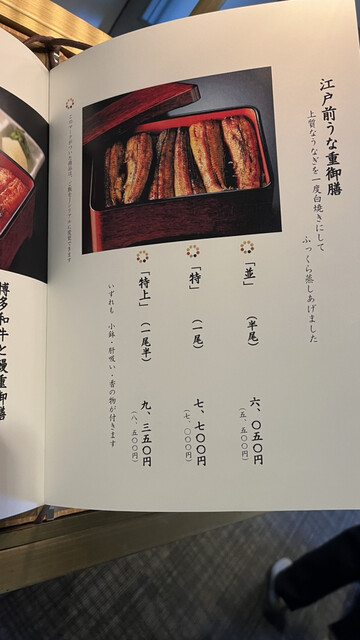 江戸前うな重御膳
上質なうなぎを一度白焼きにして
ふっくら蒸しあげました
「並」 (半尾) 六、〇五〇円
(五、五〇〇円)
「特」 (一尾) 七、七〇〇円
(七、〇〇〇円)
「特上」 (一尾半) 九、三五〇円
(八、五〇〇円)
いずれも 小鉢・肝吸い・香の物が付きます
博多和牛と鰻重御膳